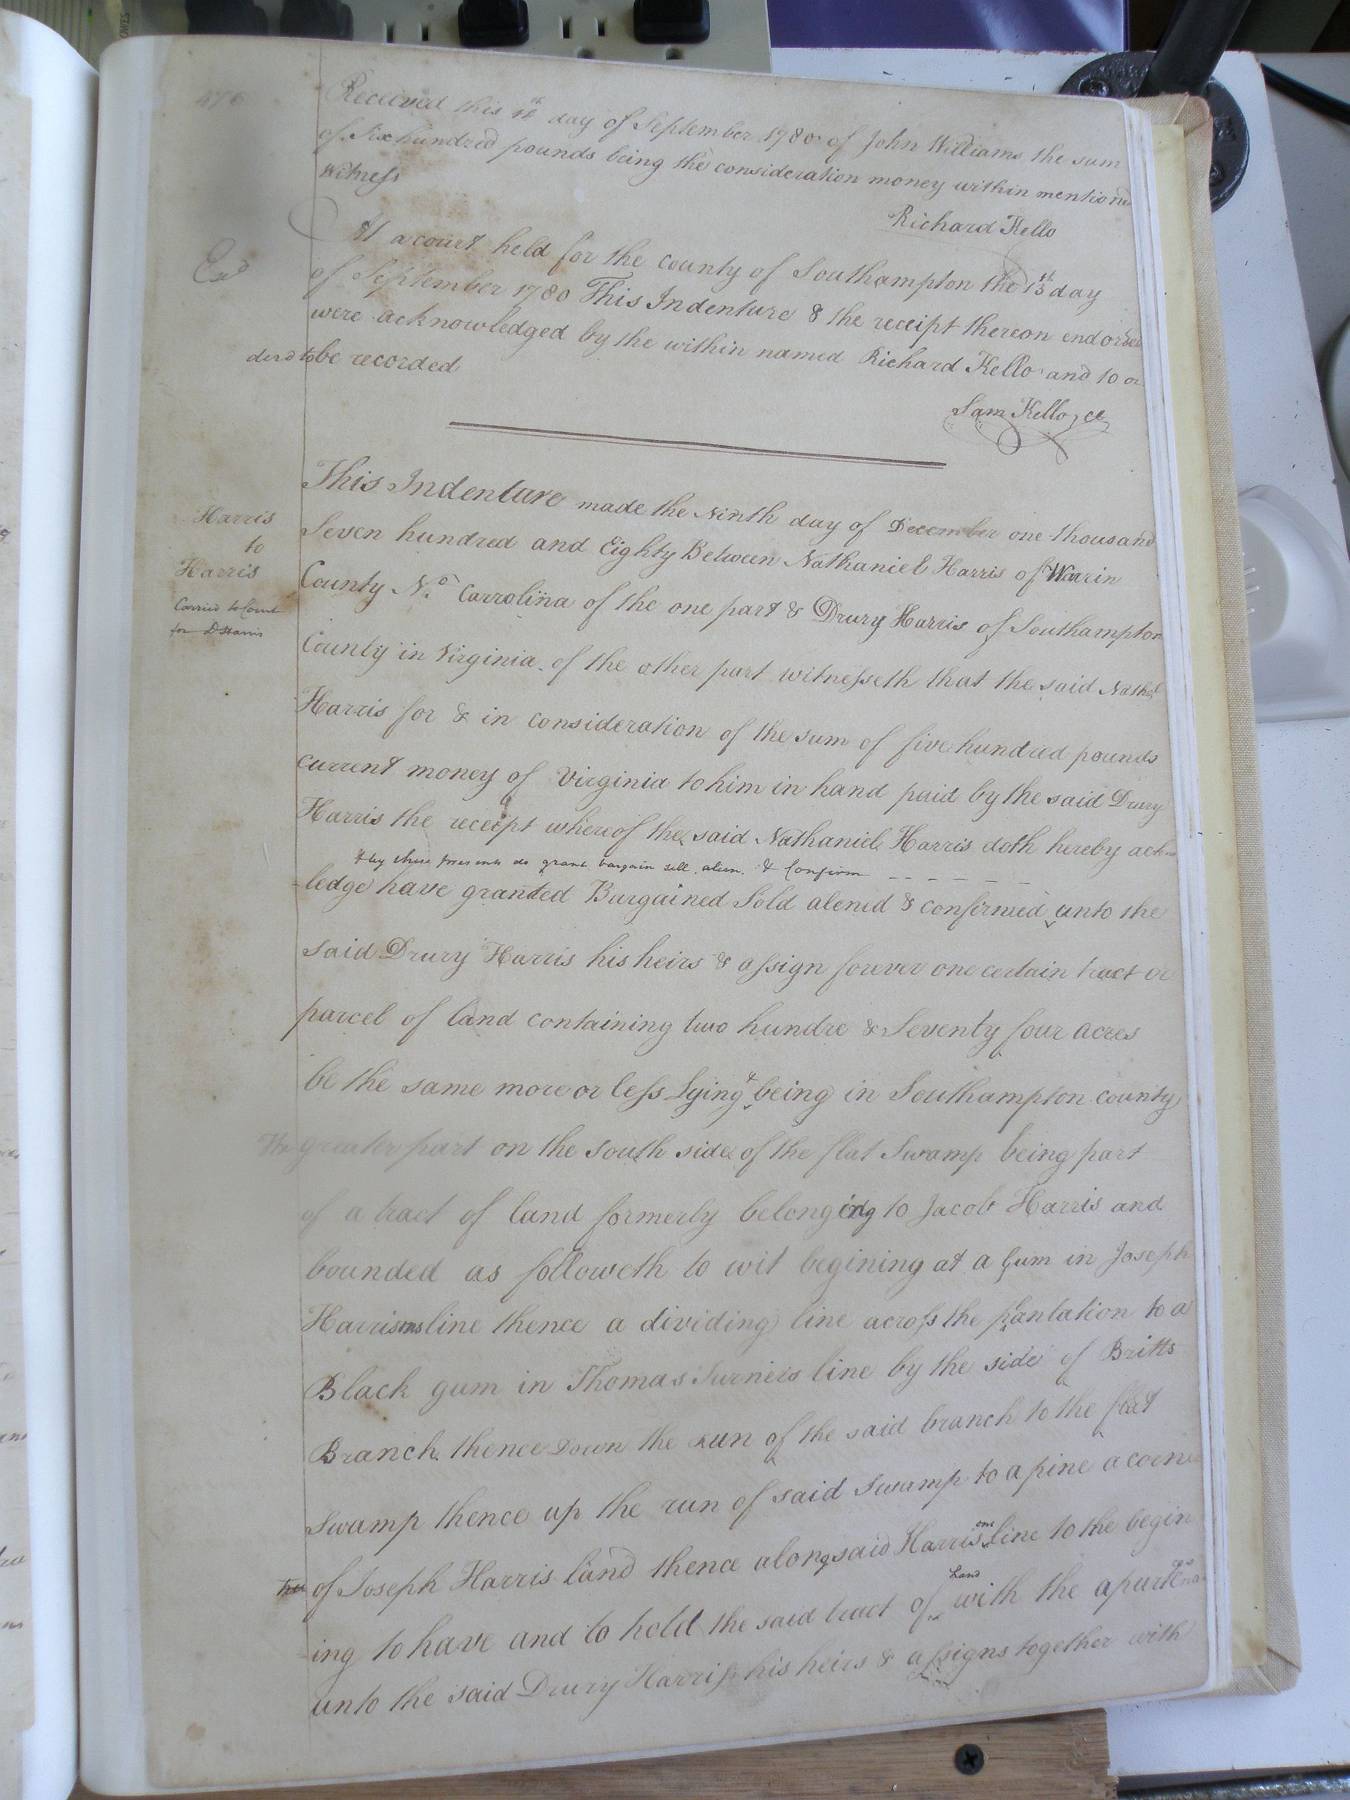 476
Received this 14th day of September 1780 of John Williams the sum
of Six hundred pounds being the consideration money within mention'd
Witness
Richard Kello
At a court held for the county of Southampton the 14th day
of September 1780 This Indenture & the receipt thereon endorsed
were acknowledged by the within named Richard Kello and to or
derd to be recorded
Sam Kello, Cl
Exd
This Indenture made the Ninth day of December one thousand
Seven hundred and Eighty Between Nathaniel Harris of Warrin
County No. Carrolina of the one part & Drury Harris of Southampton
County in Virginia of the other part witnesseth that the said Nathl
Harris for & in consideration of the sum of five hundred pounds
current money of Virginia to him in hand paid by the said Drury
Harris the receipt whereof the said Nathaniel Harris doth hereby ack
& by these presents do grant bargain sell, alien, & Confirm
ledge have granted Bargained Sold aliened & confirmed unto the
said Drury Harris his heirs & assign forever one certain tract or
parcel of land containing two hundre & Seventy four acres
be the same more or less Lying & being in Southampton county
The greater part on the south side of the flat Swamp being part
of a tract of land formerly belonging to Jacob Harris and
bounded as followeth to wit begining at a Gum in Joseph
Harris line thence a dividing line across the plantation to a
Black gum in Thomas Turners line by the side of Britts
Branch thence Down the run of the said branch to the flat
Swamp thence up the run of said Swamp to a pine a corner
tree of Joseph Harris land thence along said Harris line to the begin
ing to have and to hold the said tract of land with the apurtena
unto the said Drury Harris his heirs & assigns together with
Harris
to
Harris
Carried to Court
for D Harris